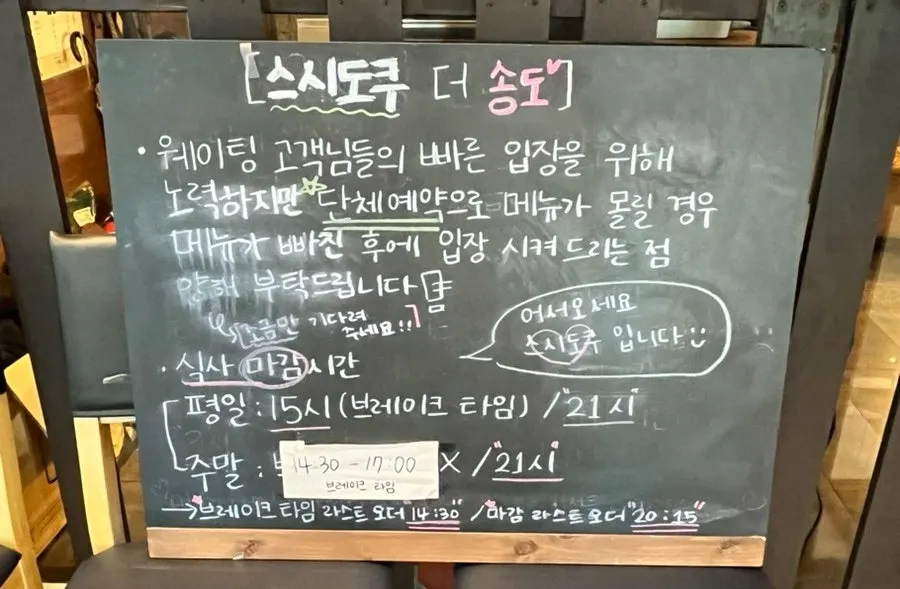 [스시도쿠 더 송도]
· 웨이팅 고객님들의 빠른 입장을 위해
노력하지만 단체예약으로 메뉴가 몰릴 경우
메뉴가 빠진 후에 입장 시켜 드리는 점
양해 부탁드립니다
조금만 기다려
주세요!!
어서오세요
스시도쿠 입니다
· 식사 마감시간
평일 : 15시 (브레이크 타임) / "21시"
주말 : X / "21시"
14:30 - 17:00
브레이크 타임
→ 브레이크타임 라스트오더 "14:30" / 마감 라스트오더 "20:15"